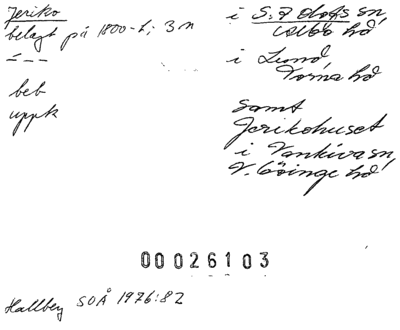 Jeriko
belagt på 1800-t; 3 n
- - -
beb
uppk
i S. Å sn,
Albo hd
i Lund,
Torna hd
samt
Jerikohuset
i Vankiva sn,
V. Göinge hd
00026103
Hallberg SOÅ 1976:82